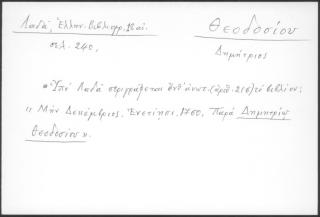 Λαδᾶ, Ἑλλην. Βιβλιογρ. 18 αἰ.
Θεοδοσίου
σελ. 240,
Δημήτριος
Ὑπὸ Λαδᾶ περιγράφεται ὑπ' ἀνωτ. (ἀριθ. 216) τὸ βιβλίον:
« Μὴν Δεκέμβριος. Ἐνετίησι, 1760, Παρὰ Δημητρίῳ
Θεοδοσίου ».